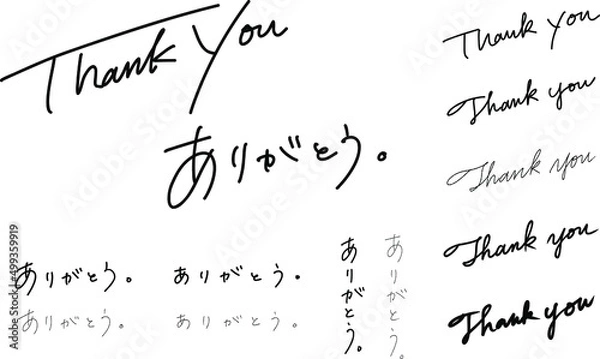 Thank You
ありがとう。
ありがとう。
ありがとう。
ありがとう。
ありがとう。
ありがとう。
ありがとう。
Thank You
Thank you
Thank you
Thank you
Thank you
Adobe Stock | #499359919